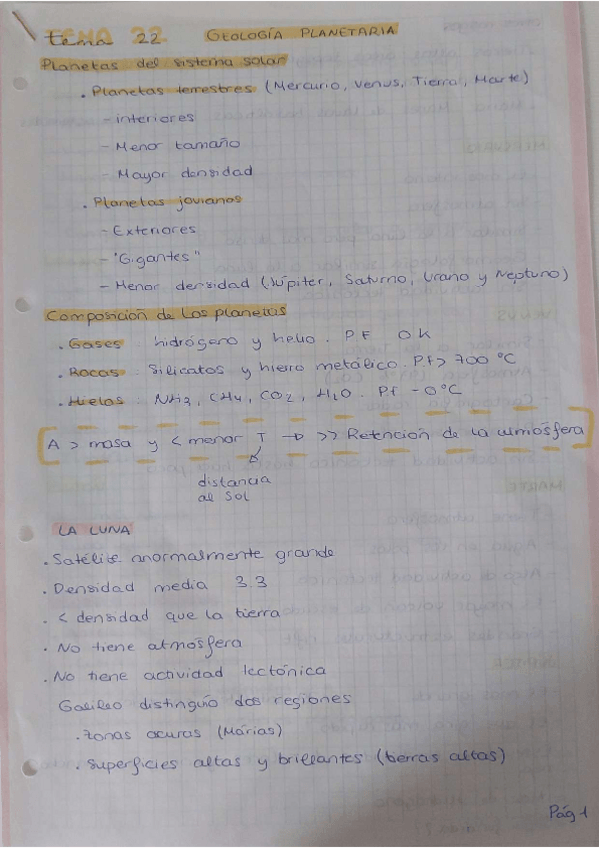 tema 22 GEOLOGÍA PLANETARIA
Planetas del sistema solar
. Planetas terrestres (Mercurio, Venus, Tierra, Marte)
- interiores
- Menor tamaño
- Mayor densidad
. Planetas jovianos
- Exteriores
- "Gigantes"
- Menor densidad (Júpiter, Saturno, Urano y Neptuno)
Composición de los planetas
. Gases: hidrógeno y helio. PF OK
. Rocas: Silicatos y hierro metálico. Pf > 700 °C
. Hielos: NH3, CH4, CO2, H2O. Pf - 0°C
A > masa y < menor T → >> Retención de la atmósfera
distancia
al Sol
LA LUNA
. Satélite anormalmente grande
. Densidad media 3.3
. < densidad que la tierra
. No tiene atmósfera
. No tiene actividad tectónica
Galileo distinguío dos regiones
. zonas oscuras (Marias)
. superficies altas y brillantes (tierras altas)
Pág 1